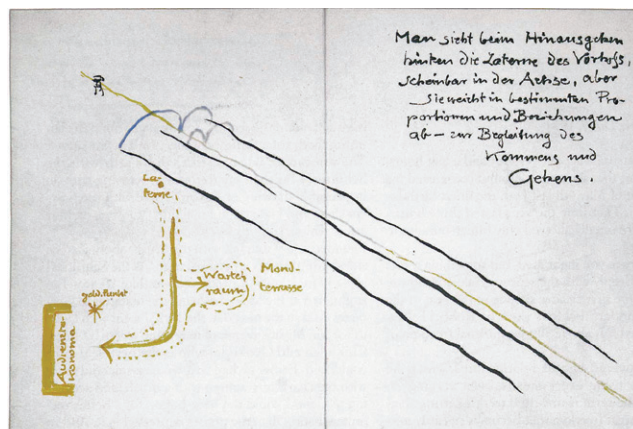 Man sieht beim Hinausgehen
hinten die Laterne des Vorhofs,
scheinbar in der Achse, aber
sie weicht in bestimmten Pro-
portionen und Beziehungen
ab – zur Begleitung des
Kommens und
Gehens.
La-
terne
Warte-
raum
Mond-
terrasse
gold.
Audienz-